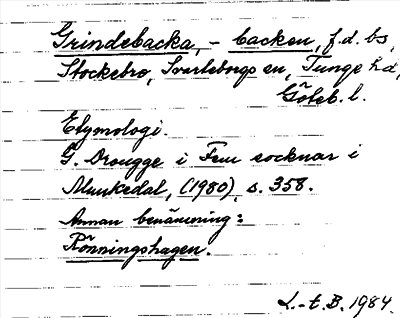 Grindebacka, - backen, f.d. bs,
Stockebro, Svarteborgs sn, Tunge hd,
Göteb. l.
Etymologi.
G. Drougge i Fem socknar i
Munkedal, (1980), s. 358.
Annan benämning:
Rönningshagen.
L.-t. B. 1984.